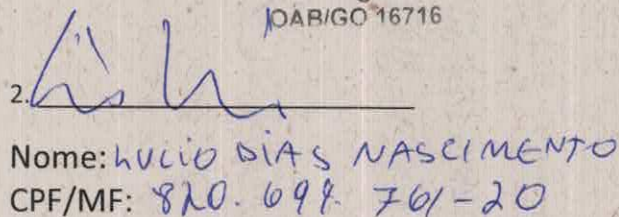 OAB/GO 16716
2.
Nome: LUCIO DIAS NASCIMENTO
CPF/MF: 820.699.761-20